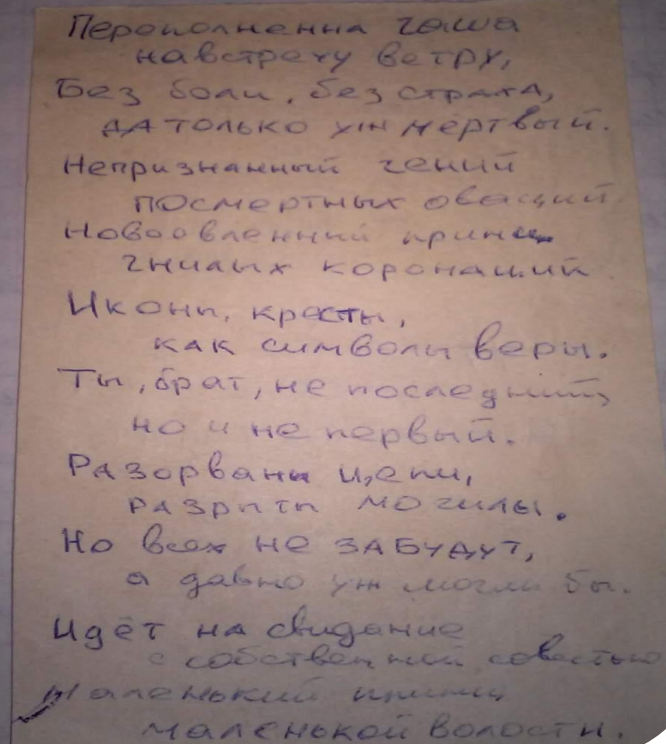 Переполненна чаша
навстречу ветру,
Без боли, без страха,
да только уж мёртвый.
Непризнанный гений
посмертных оваций
Новоявленный принц
гнилых коронаций
Иконы, кресты,
как символы веры.
Ты, брат, не последний,
но и не первый.
Разорваны цепи,
разрыты могилы.
Но всех не забудут,
а давно уж могли бы.
Идёт на свидание
с собственной совестью
маленький принц
маленькой волости.